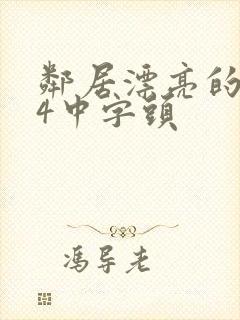 鄰居漂亮的
4中字頭
馮导老